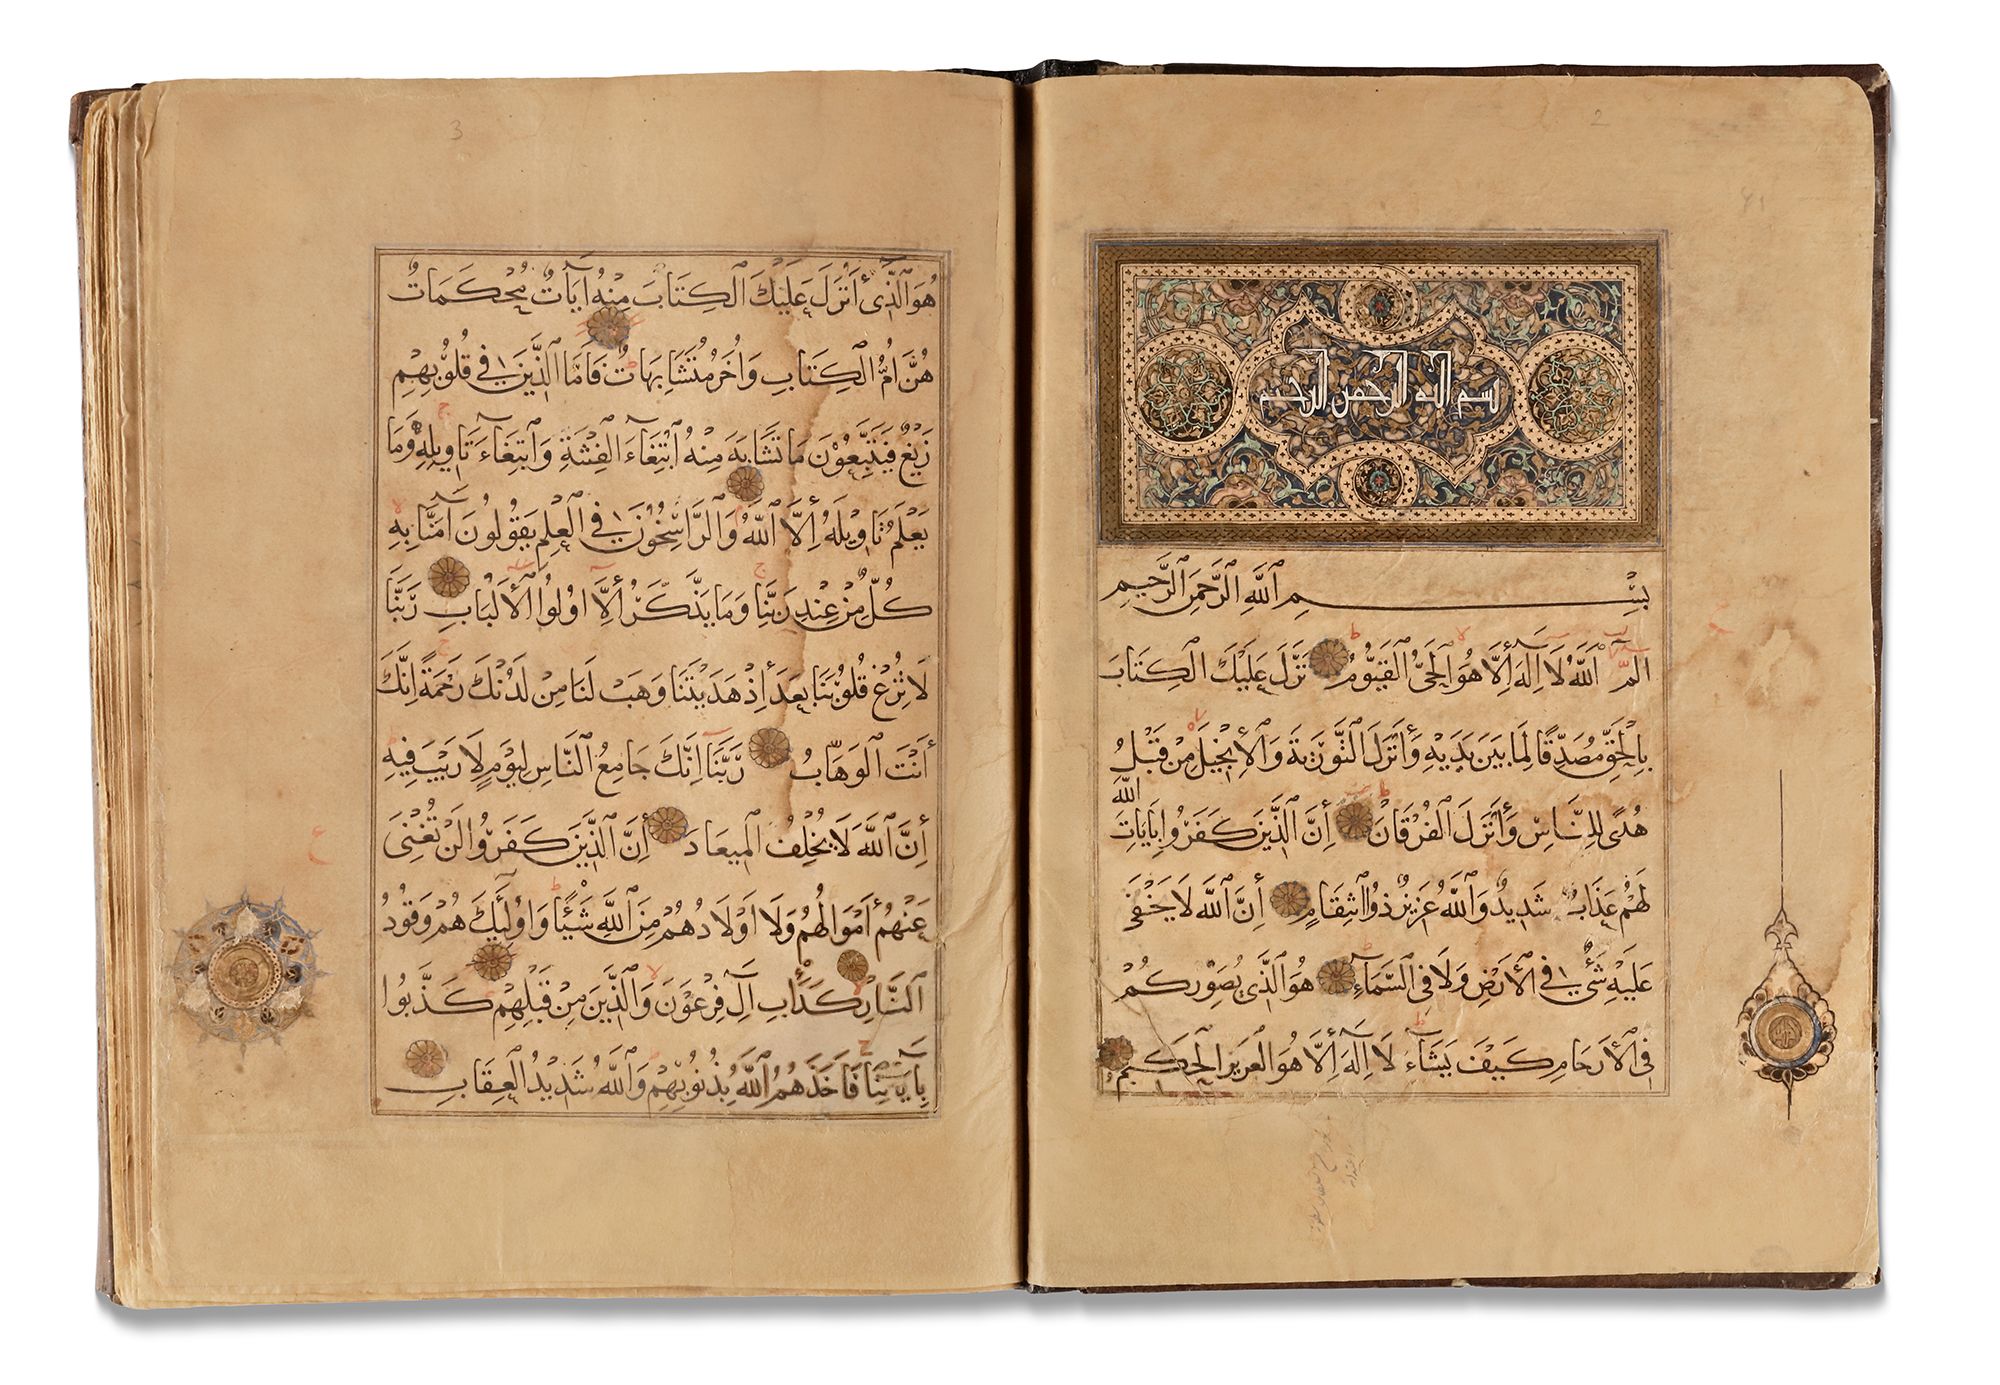 بسم الله الرحمن الرحيم
بِسْمِ اللَّهِ الرَّحْمَنِ الرَّحِيمِ
الم اللَّهُ لَا إِلَهَ إِلَّا هُوَ الْحَيُّ الْقَيُّومُ نَزَّلَ عَلَيْكَ الْكِتَابَ
بِالْحَقِّ مُصَدِّقًا لِمَا بَيْنَ يَدَيْهِ وَأَنْزَلَ التَّوْرَيةَ وَالْإِنْجِيلَ مِنْ قَبْلُ
هُدًى لِلنَّاسِ وَأَنْزَلَ الْفُرْقَانَ إِنَّ الَّذِينَ كَفَرُوا بِآيَاتِ اللَّهِ
لَهُمْ عَذَابٌ شَدِيدٌ وَاللَّهُ عَزِيزٌ ذُو انْتِقَامٍ إِنَّ اللَّهَ لَا يَخْفَى
عَلَيْهِ شَيْءٌ فِي الْأَرْضِ وَلَا فِي السَّمَاءِ هُوَ الَّذِي يُصَوِّرُكُمْ
فِي الْأَرْحَامِ كَيْفَ يَشَاءُ لَا إِلَهَ إِلَّا هُوَ الْعَزِيزُ الْحَكِيمُ
هُوَ الَّذِي أَنْزَلَ عَلَيْكَ الْكِتَابَ مِنْهُ آيَاتٌ مُحْكَمَاتٌ
هُنَّ أُمُّ الْكِتَابِ وَأُخَرُ مُتَشَابِهَاتٌ فَأَمَّا الَّذِينَ فِي قُلُوبِهِمْ
زَيْغٌ فَيَتَّبِعُونَ مَا تَشَابَهَ مِنْهُ ابْتِغَاءَ الْفِتْنَةِ وَابْتِغَاءَ تَأْوِيلِهِ وَمَا
يَعْلَمُ تَأْوِيلَهُ إِلَّا اللَّهُ وَالرَّاسِخُونَ فِي الْعِلْمِ يَقُولُونَ آمَنَّا بِهِ
كُلٌّ مِنْ عِنْدِ رَبِّنَا وَمَا يَذَّكَّرُ إِلَّا أُولُوا الْأَلْبَابِ رَبَّنَا
لَا تُزِغْ قُلُوبَنَا بَعْدَ إِذْ هَدَيْتَنَا وَهَبْ لَنَا مِنْ لَدُنْكَ رَحْمَةً إِنَّكَ
أَنْتَ الْوَهَّابُ رَبَّنَا إِنَّكَ جَامِعُ النَّاسِ لِيَوْمٍ لَا رَيْبَ فِيهِ
إِنَّ اللَّهَ لَا يُخْلِفُ الْمِيعَادَ إِنَّ الَّذِينَ كَفَرُوا لَنْ تُغْنِيَ
عَنْهُمْ أَمْوَالُهُمْ وَلَا أَوْلَادُهُمْ مِنَ اللَّهِ شَيْئًا وَأُولَئِكَ هُمْ وَقُودُ
النَّارِ كَدَأْبِ آلِ فِرْعَوْنَ وَالَّذِينَ مِنْ قَبْلِهِمْ كَذَّبُوا
بِآيَاتِنَا فَأَخَذَهُمُ اللَّهُ بِذُنُوبِهِمْ وَاللَّهُ شَدِيدُ الْعِقَابِ
2
3